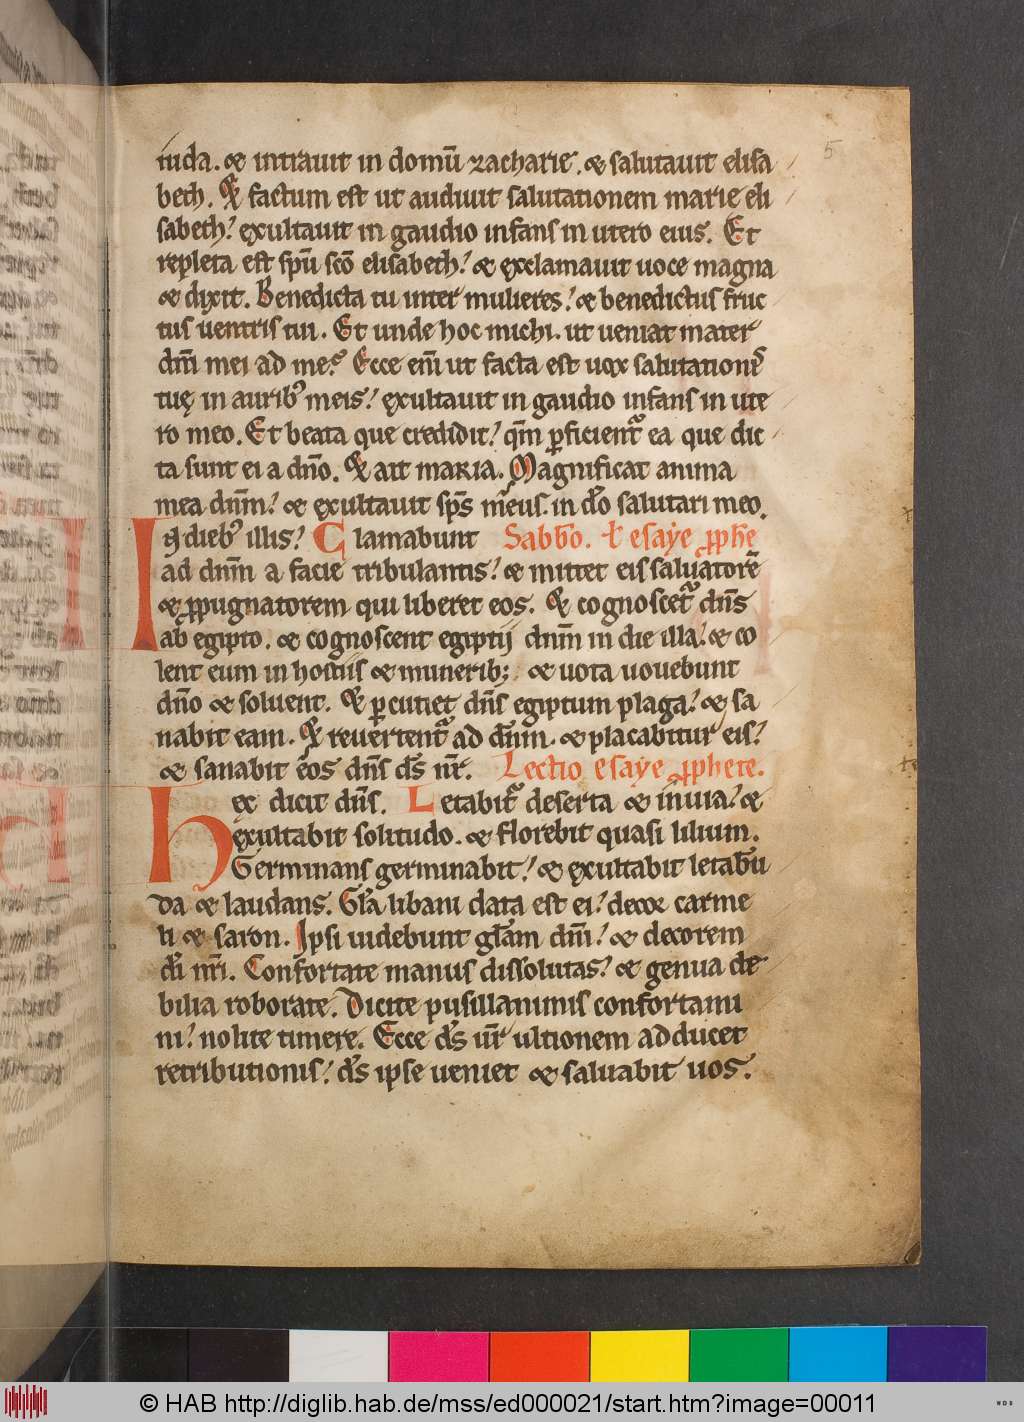 5
iuda. & intrauit in domū zacharie. & salutauit elisa
beth. Et factum est ut audiuit salutationem marie eli
sabeth? exultauit in gaudio infans in utero eius. Et
repleta est spū scō elisabeth? & exclamauit uoce magna
& dixit. Benedicta tu inter mulieres? & benedictus fruc
tus uentris tui. Et unde hoc michi. ut ueniat mater
dnī mei ad me? Ecce eni̅ ut facta est uox salutationis
tuę in aurib' meis? exultauit in gaudio infans in ute
ro meo. Et beata que credidit? qm̅ ꝑficient ea que dic
ta sunt ei a dn̄o. Et ait maria. Magnificat anima
mea dnm̄? & exultauit sp̄s meus. in dō salutari meo.
In dieb' illis? Clamabunt Sabbo. ł esaye ꝓphe
ad dnm̄ a facie tribulantis? & mittet eis saluatorē
& ꝓpugnatorem qui liberet eos. Et cognoscet dn̄s
ab egipto. & cognoscent egiptij dnm̄ in die illa? & co
lent eum in hostiis & munerib; & uota uouebunt
dn̄o & soluent. Et ꝑcutiet dn̄s egiptum plaga? & sa
nabit eam. Et reuertent ad dnm̄. & placabitur eis?
& sanabit eos dn̄s ds̄ nr̄. Lectio esaye ꝓphete.
Hęc dicit dn̄s. Letabit deserta & inuia? &
exultabit solitudo. & florebit quasi lilium.
Germinans germinabit? & exultabit letabū
da & laudans. Gła libani data est ei? decor carme
li & saron. Ipsi uidebunt głam dnī? & decorem
dī nrī. Confortate manus dissolutas? & genua de
bilia roborate. Dicite pusillanimis confortami
ni? nolite timere. Ecce ds̄ ur̄ ultionem adducet
retributionis? ds̄ ipse ueniet & saluabit uos.
© HAB http://diglib.hab.de/mss/ed000021/start.htm?image=00011